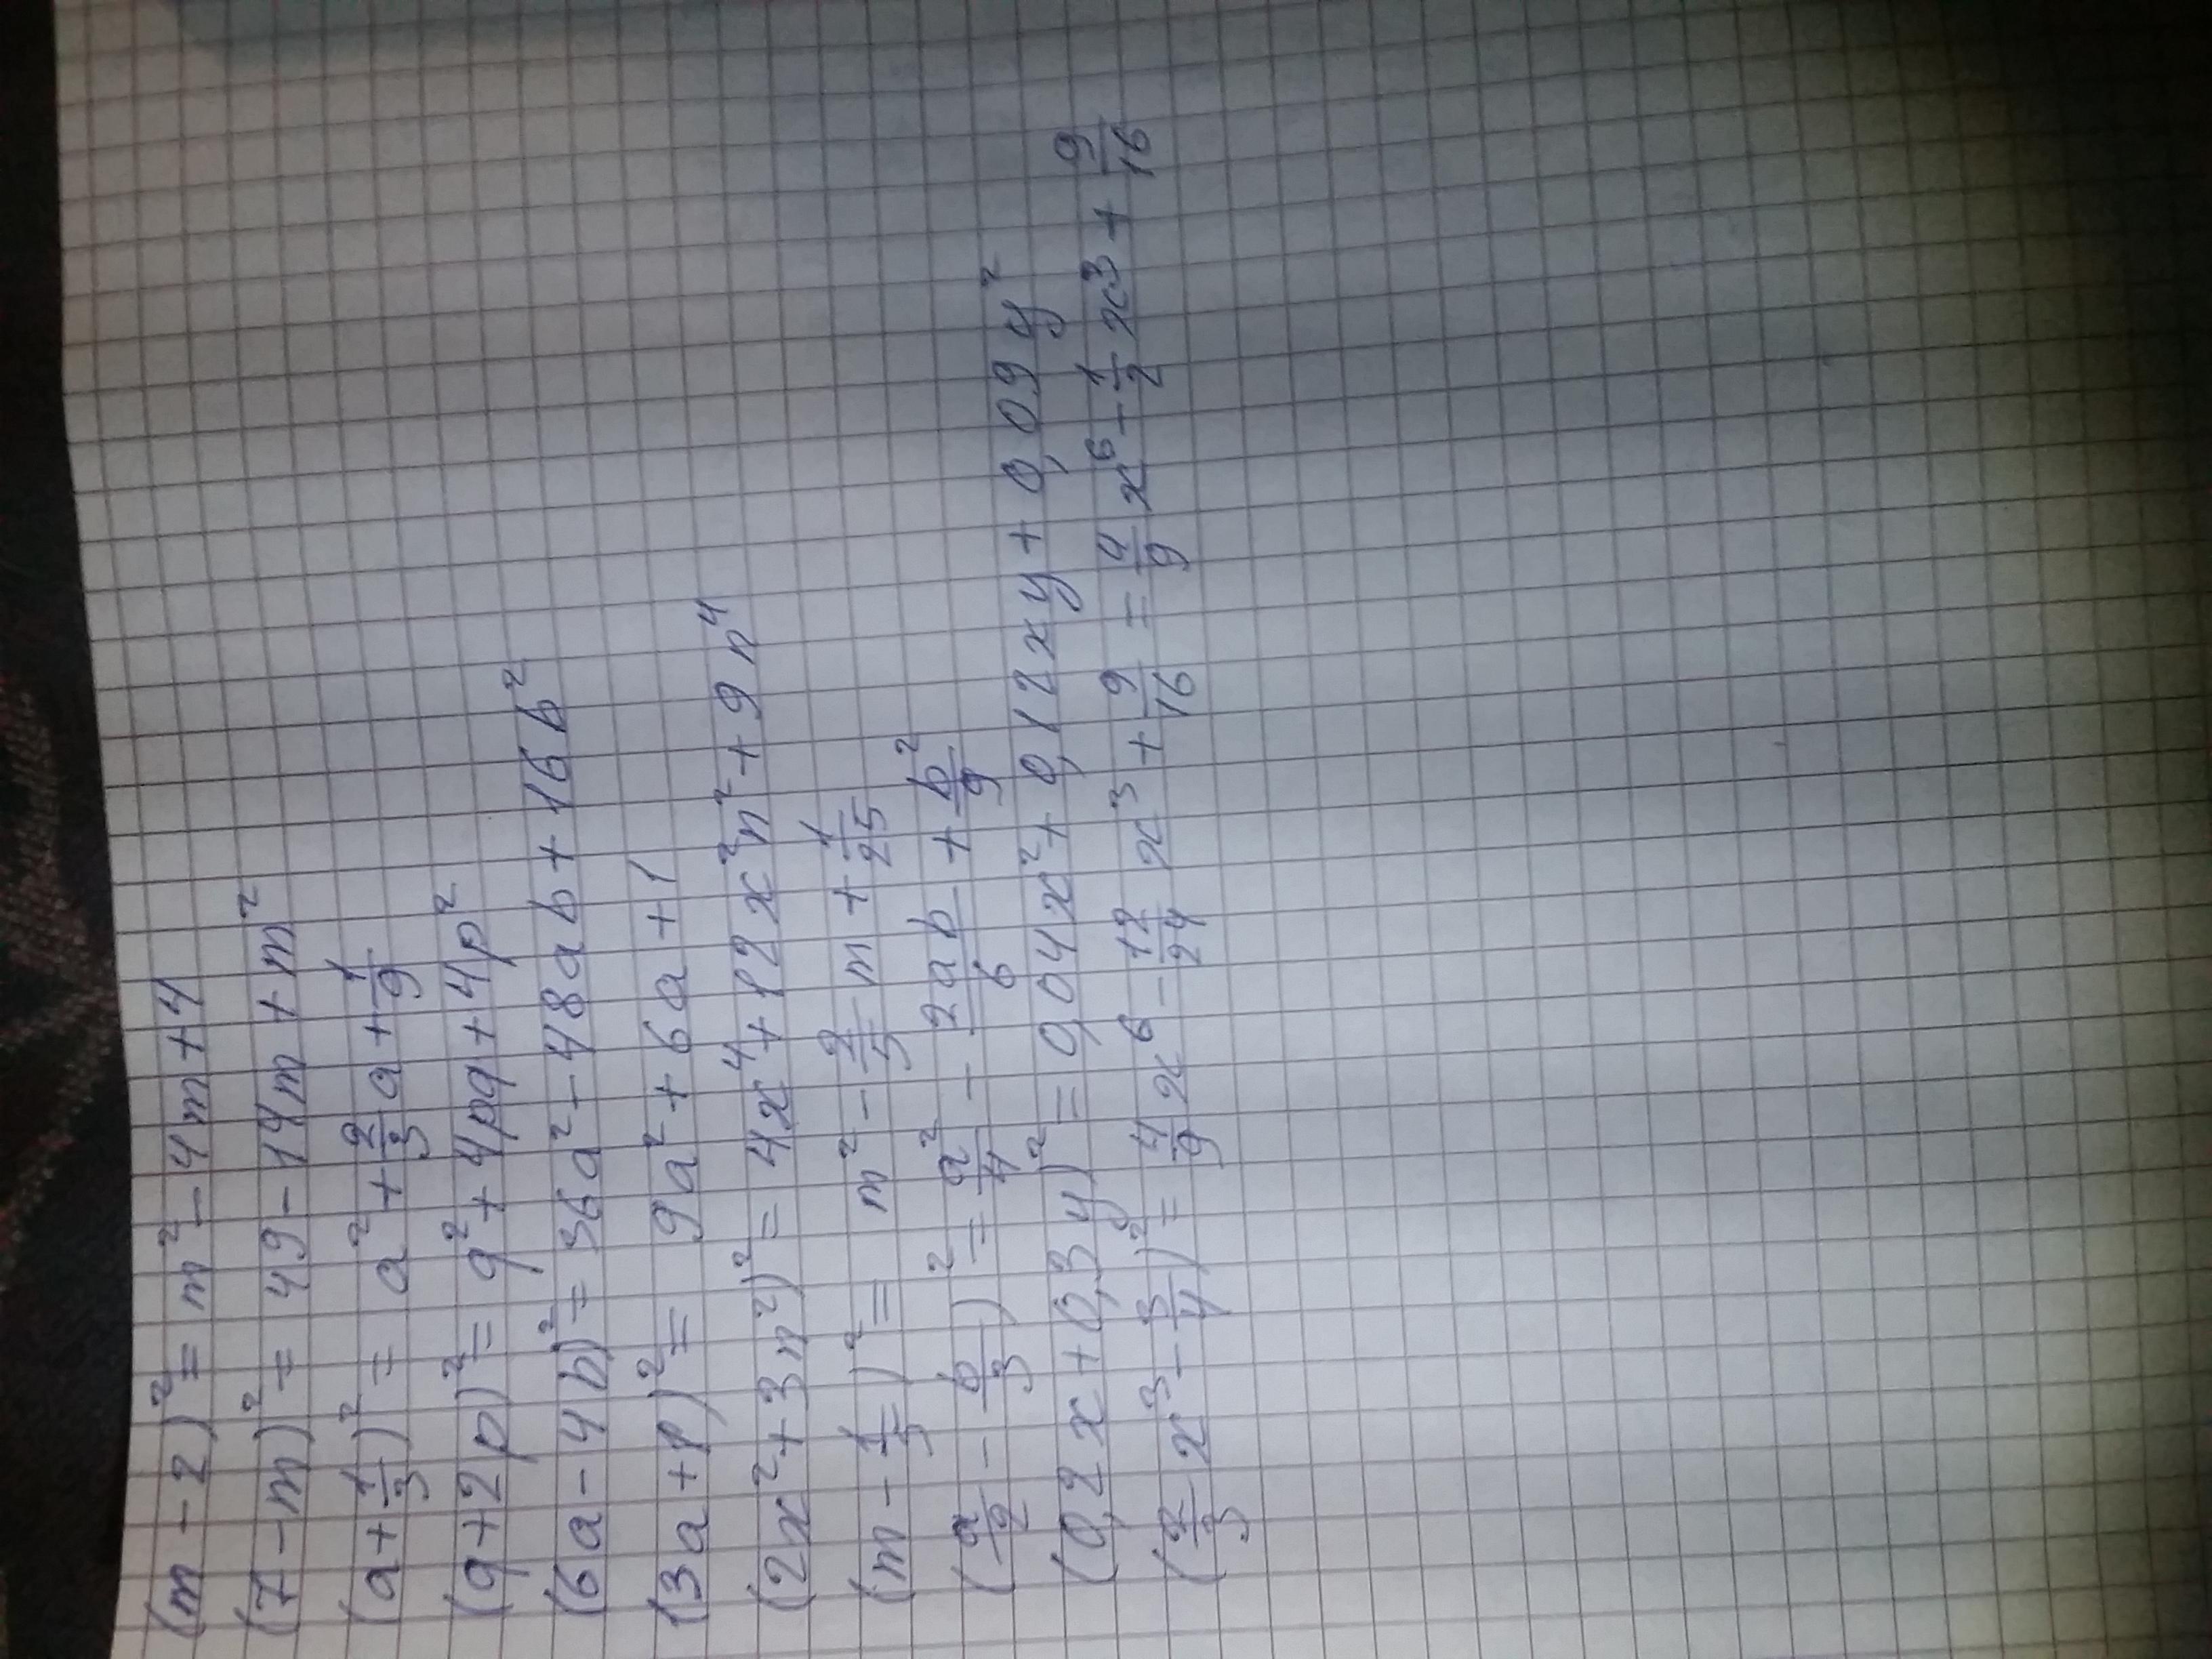 (m-2)²=m²-4m+4
(7-m)²=49-14m+m²
(a+1/3)²=a²+2/3a+1/9
(q+2p)²=q²+4pq+4p²
(6a-4b)²=36a²-48ab+16b²
(3a+1)²=9a²+6a+1
(2x²+3n²)²=4x⁴+12x²n²+9n⁴
(m-1/5)²=m²-2/5m+1/25
(a/2-b/3)²=a²/4-2ab/6+b²/9
(0,2x+0,3y)²=0,04x²+0,12xy+0,09y²
(2/3x³-3/4)²=4/9x⁶-12/24x³+9/16=4/9x⁶-1/2x³+9/16